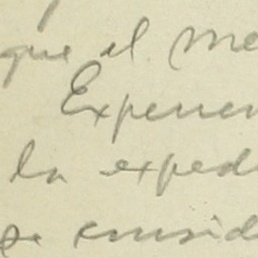 que el me
Experien
la exped
se consid